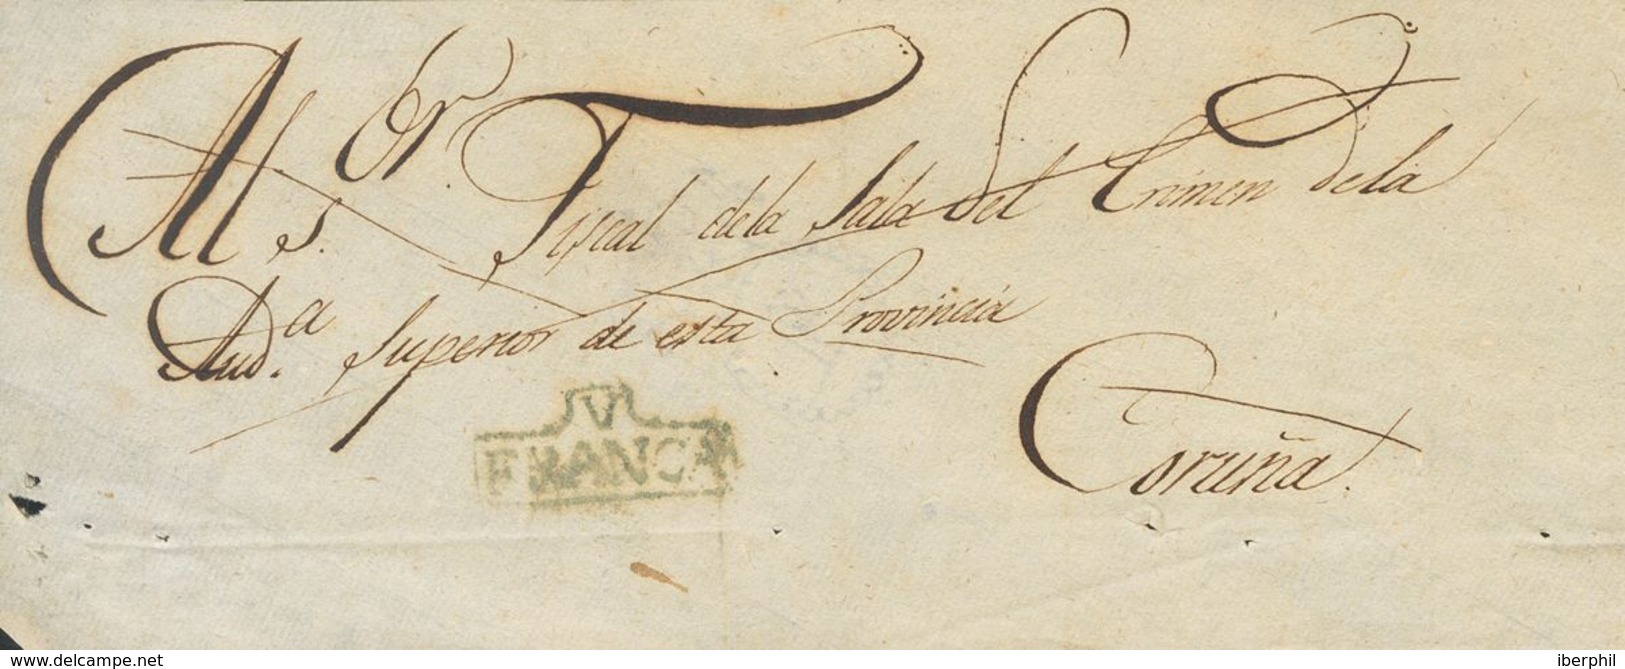 Al Sor. Fiscal dela Sala del Crimen dela
Auda. Superior de esta Provincia
Coruña.
V
FRANCA
www.delcampe.net
iberphil